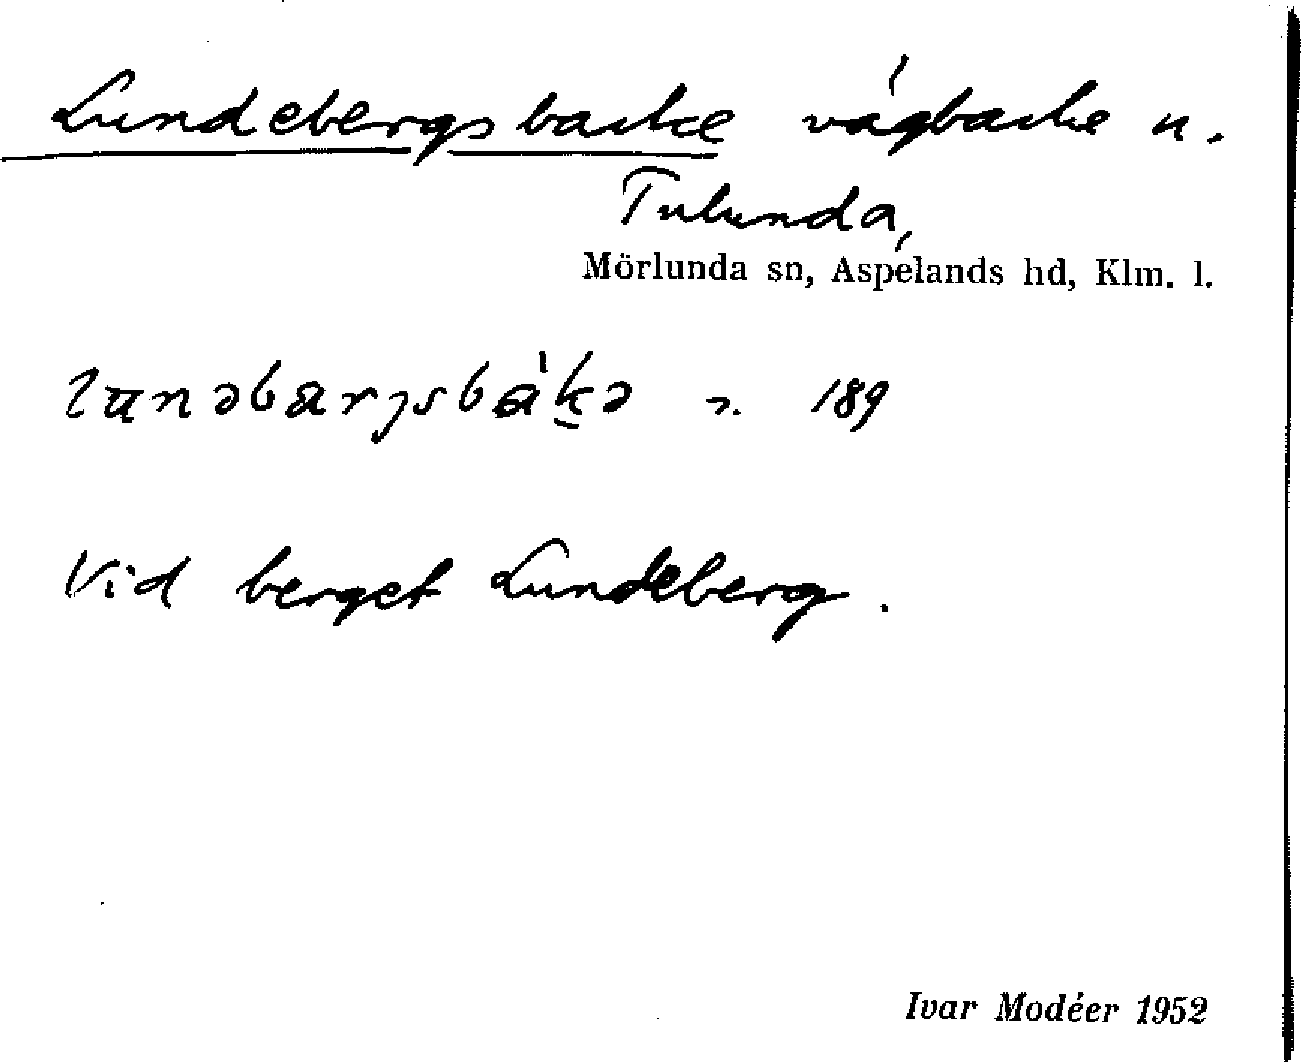 Lundebergsbacke vägbacke n.
Tulunda,
Mörlunda sn, Aspelands hd, Klm. l.
lunəbarjsbákə n. 189
Vid berget Lundeberg.
Ivar Modéer 1952